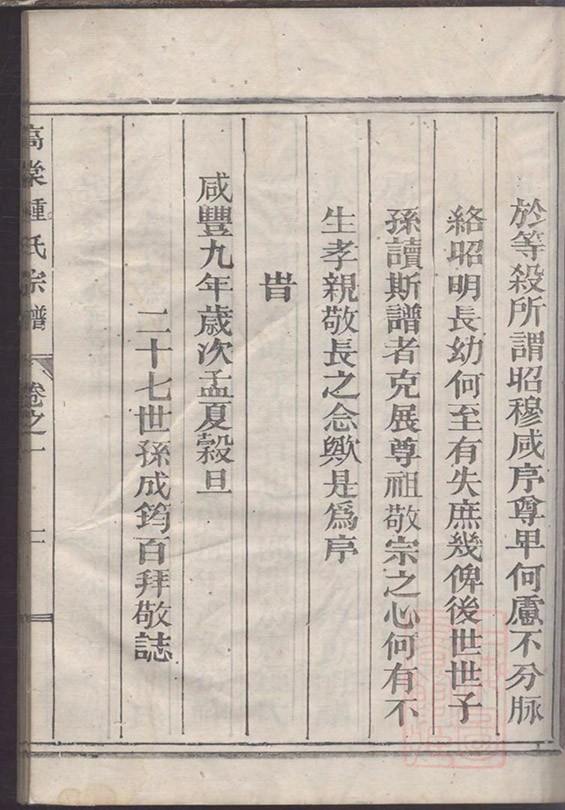 於等殺所謂昭穆咸序尊卑何慮不分脉
絡昭明長幼何至有失庶幾俾後世世子
孫讀斯譜者克展尊祖敬宗之心何有不
生孝親敬長之念歟是爲序
旹
咸豐九年歲次孟夏穀旦
二十七世孫成筠百拜敬誌
高棠鍾氏宗譜 卷之一